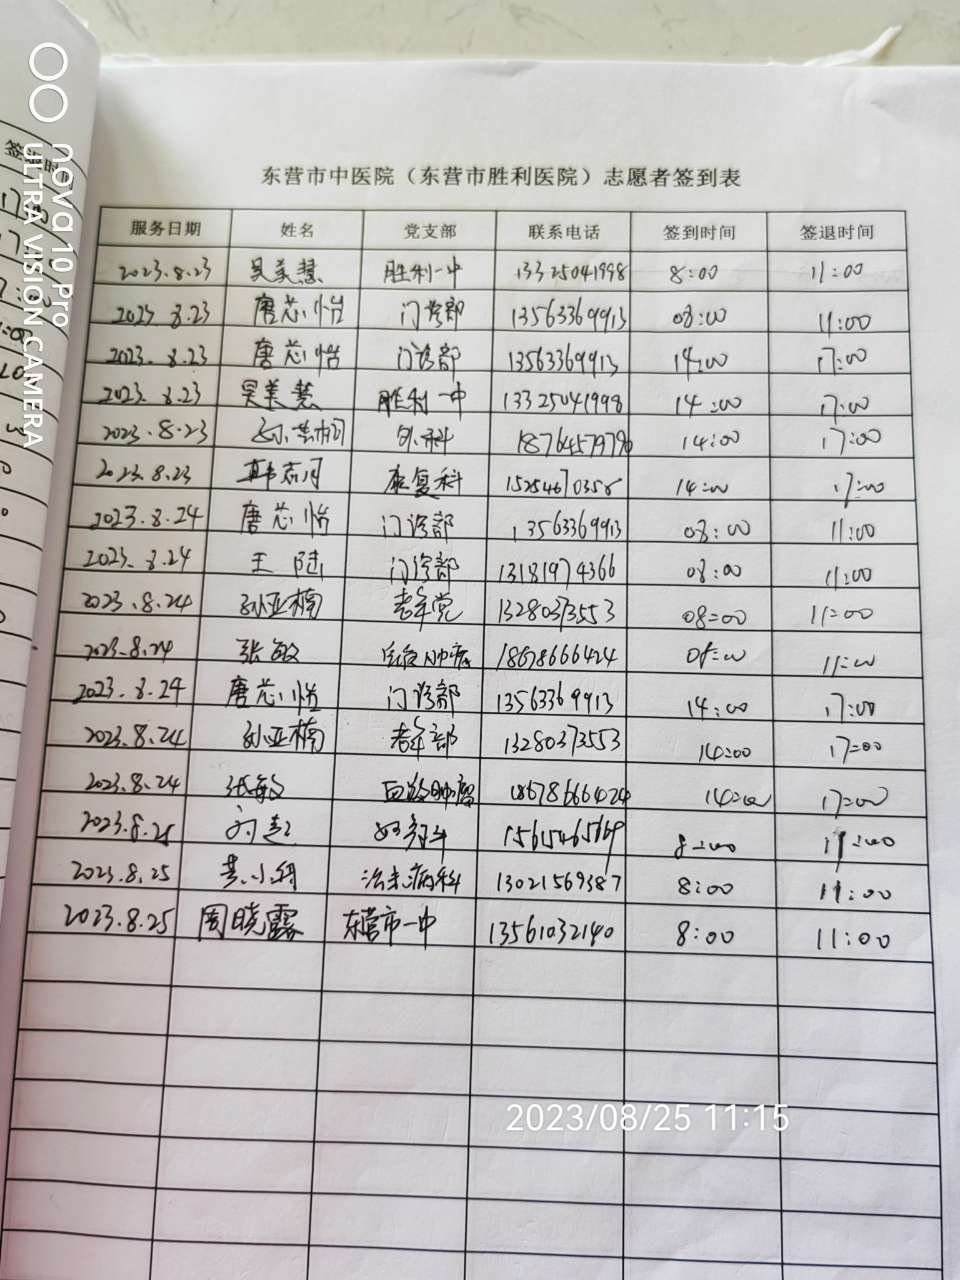 东营市中医院（东营市胜利医院）志愿者签到表
服务日期 姓名 党支部 联系电话 签到时间 签退时间
2023.8.23 吴美慧 胜利一中 13325041998 8:00 11:00
2023.8.23 唐芯怡 门诊部 13563369913 08:00 11:00
2023.8.23 唐芯怡 门诊部 13563369913 14:00 17:00
2023.8.23 吴美慧 胜利一中 13325041998 14:00 17:00
2023.8.23 外科 14:00 17:00
2023.8.23 康复科 14:00 17:00
2023.8.24 唐芯怡 门诊部 13563369913 08:00 11:00
2023.8.24 王陆 门诊部 13181974366 08:00 11:00
2023.8.24 孙亚楠 13280373553 08:00 11:00
2023.8.24 张敏 18678666424 08:00 11:00
2023.8.24 唐芯怡 门诊部 13563369913 14:00 17:00
2023.8.24 孙亚楠 13280373553 14:00 17:00
2023.8.24 张敏 18678666424 14:00 17:00
2023.8.25 8:00
2023.8.25 13021569387 8:00 11:00
2023.8.25 周晓露 东营市一中 13561032140 8:00 11:00
nova 10 Pro
ULTRA VISION CAMERA
2023/08/25 11:15